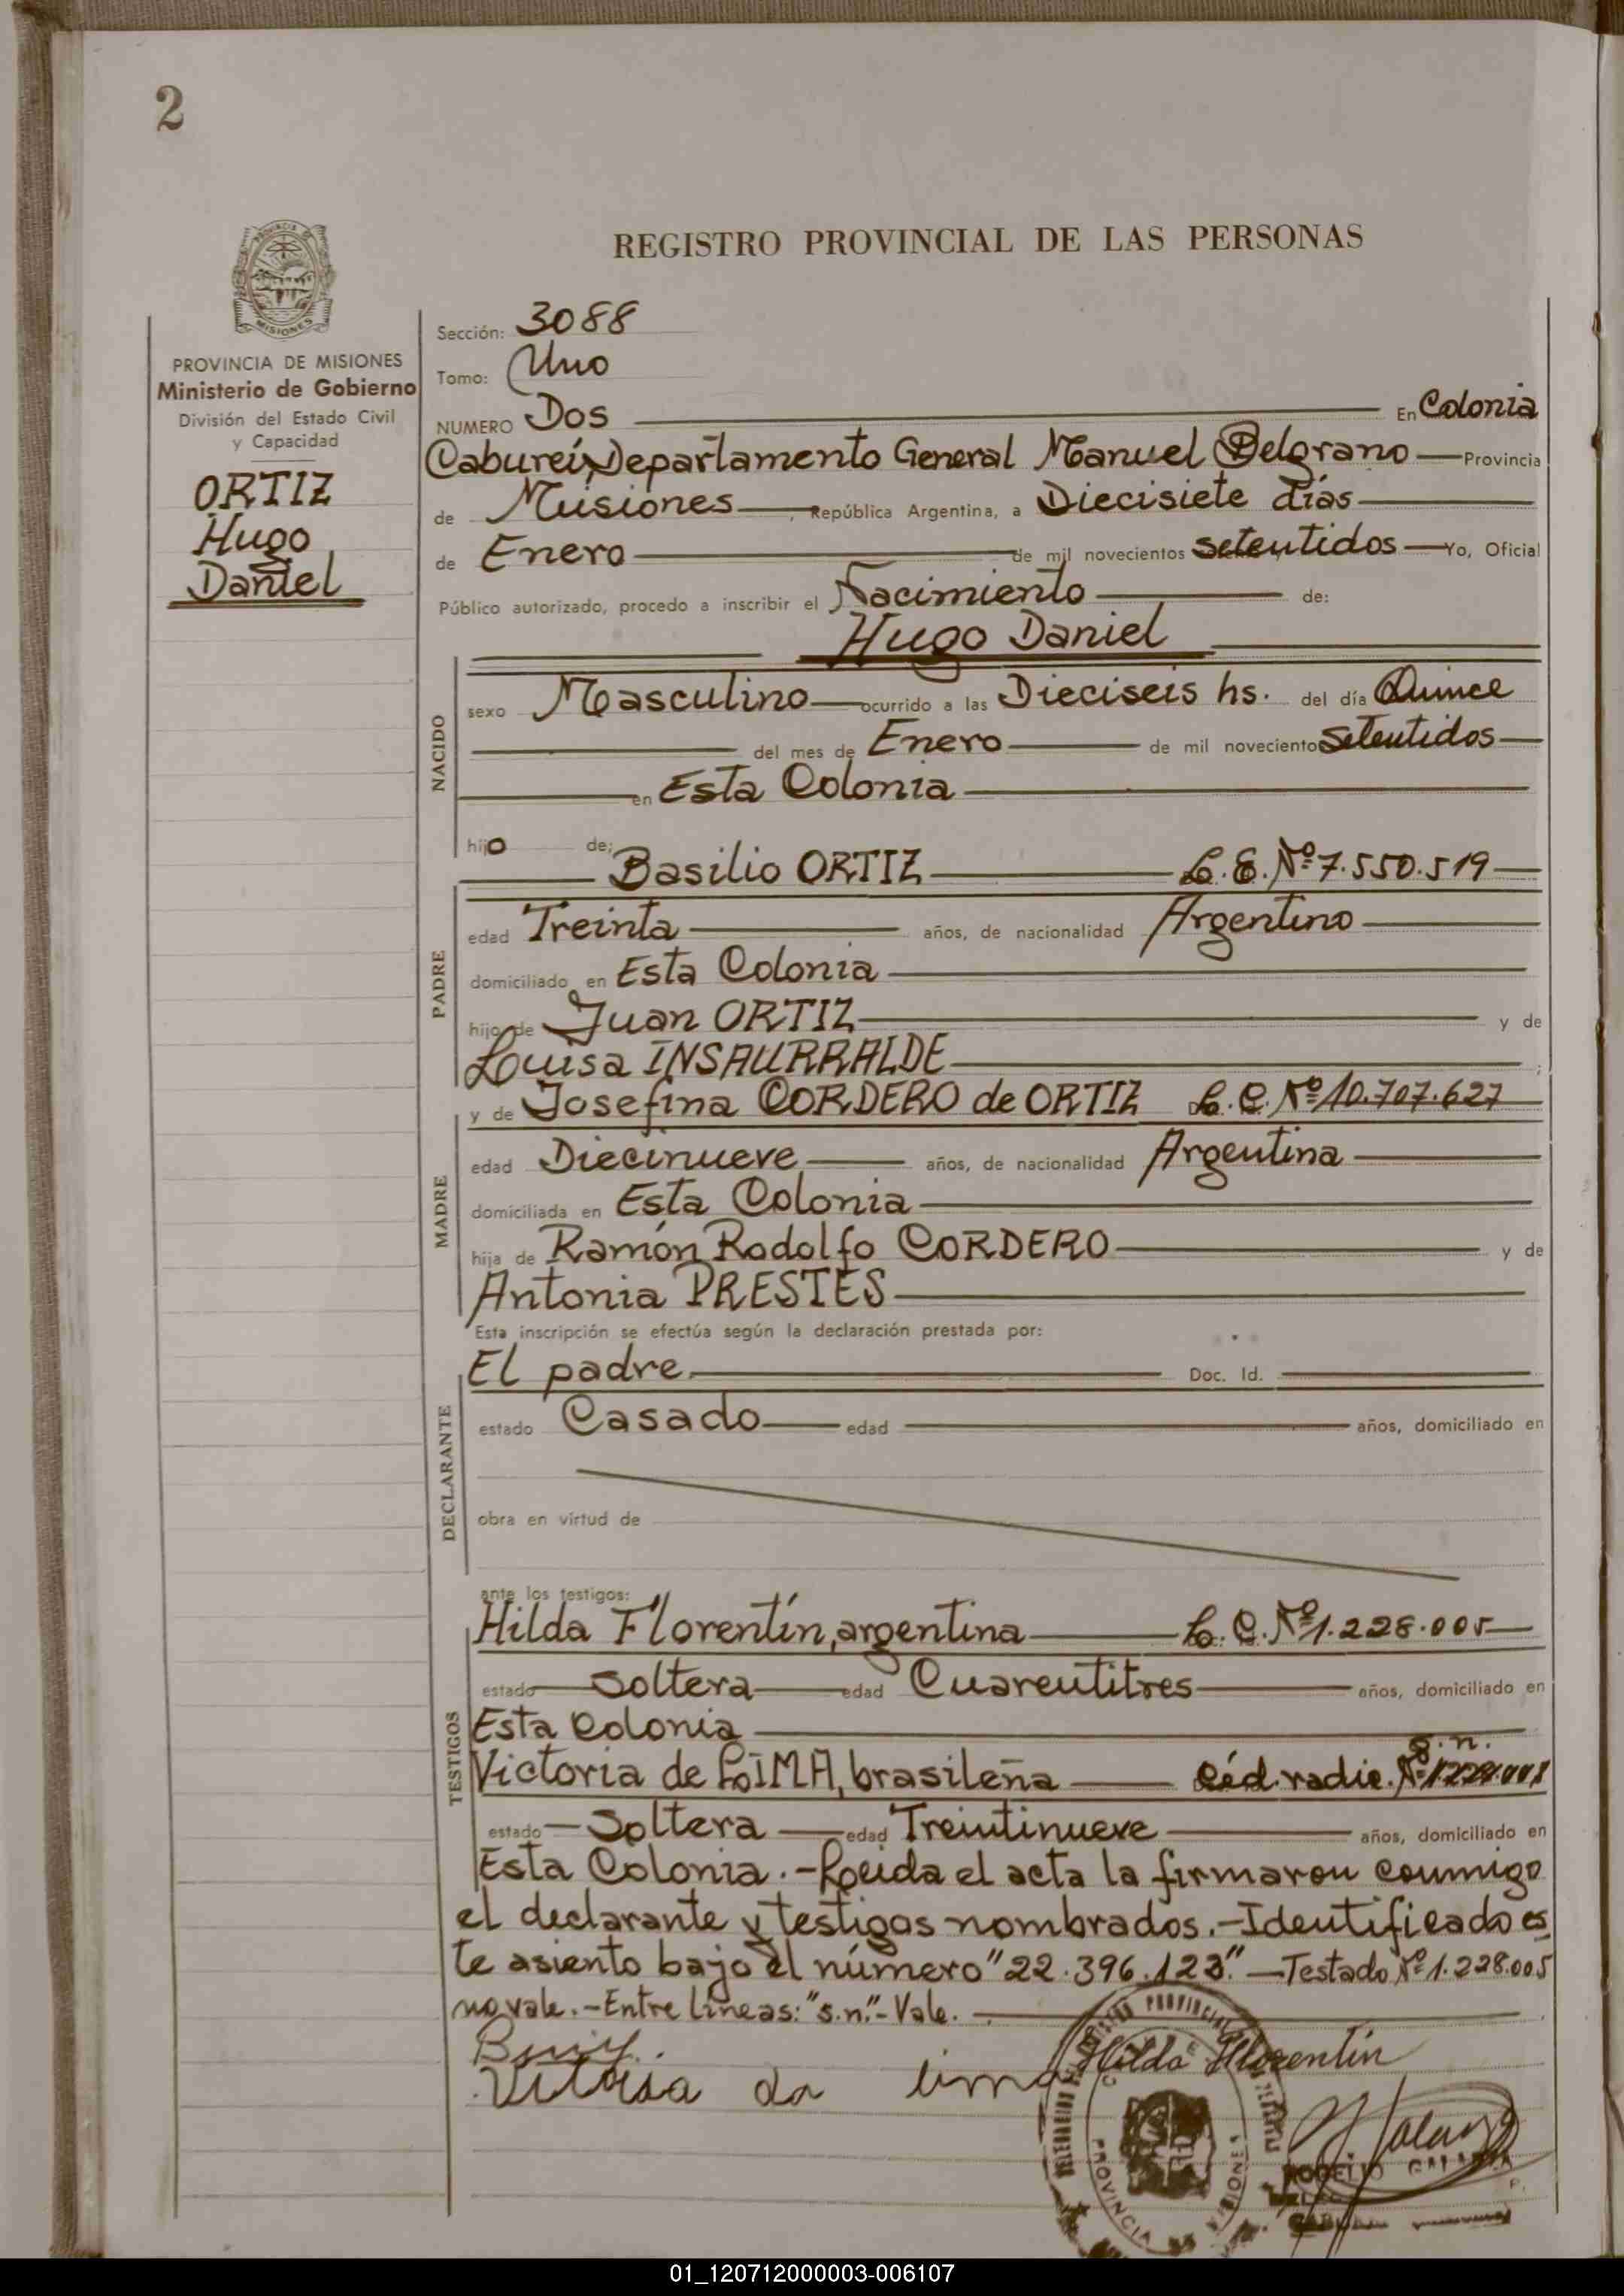 2
REGISTRO PROVINCIAL DE LAS PERSONAS
PROVINCIA DE
MISIONES
PROVINCIA DE MISIONES
Ministerio de Gobierno
División del Estado Civil
y Capacidad
ORTIZ
Hugo
Daniel
Sección: 3088
Tomo: Uno
NUMERO Dos En Colonia
Cabureí, Departamento General Manuel Belgrano Provincia
de Misiones, República Argentina, a Diecisiete días
de Enero de mil novecientos setentidos Yo, Oficial
Público autorizado, procedo a inscribir el Nacimiento de:
Hugo Daniel
NACIDO
sexo Masculino ocurrido a las Dieciseis hs. del día Quince
del mes de Enero de mil novecientos setentidos
en Esta Colonia
hijo de:
Basilio ORTIZ L.E. Nº 7.550.519
PADRE
edad Treinta años, de nacionalidad Argentino
domiciliado en Esta Colonia
hijo de Juan ORTIZ y de
Luisa INSAURRALDE ;
y de Josefina CORDERO de ORTIZ L.C. Nº 10.707.627
MADRE
edad Diecinueve años, de nacionalidad Argentina
domiciliada en Esta Colonia
hija de Ramón Rodolfo CORDERO y de
Antonia PRESTES
Esta inscripción se efectúa según la declaración prestada por:
El padre Doc. Id.
DECLARANTE
estado Casado edad años, domiciliado en
obra en virtud de
ante los testigos:
Hilda Florentín, argentina L.C. Nº 1.228.005
TESTIGOS
estado Soltera edad Cuarentitres años, domiciliado en
Esta Colonia
s.n.
Victoria de LIMA, brasileña Céd. radic. Nº
estado Soltera edad Treintinueve años, domiciliado en
Esta Colonia.- Leida el acta la firmaron conmigo
el declarante y testigos nombrados.- Identificado es
te asiento bajo el número "22.396.123".- Testado Nº 1.228.005
no vale.- Entre líneas: "s.n."- Vale.
Hilda Florentín
Vitoria da lima
PROVINCIA DE MISIONES
ROGELIO
01_120712000003-006107